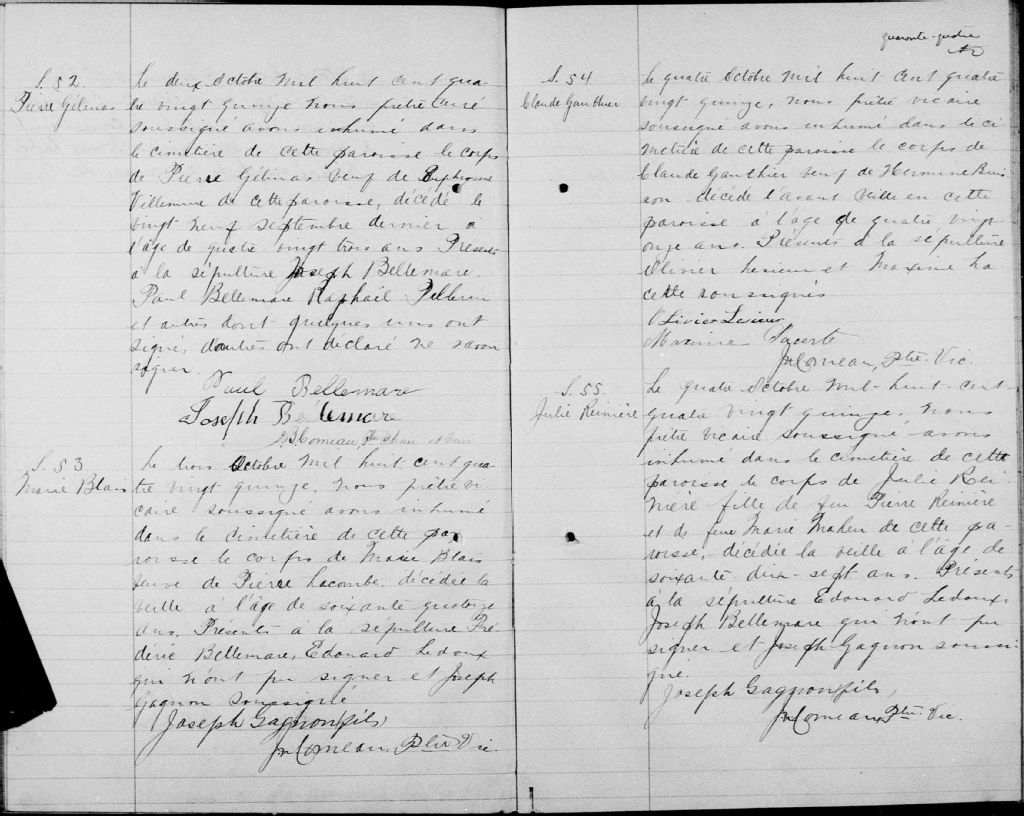 S. 52
Pierre Gélinas
Le deux Octobre mil huit cent qua-
tre vingt quinze nous prêtre curé
soussigné avons inhumé dans
le cimetière de cette paroisse le corps
de Pierre Gélinas veuf de Euphrosine
Villemure de cette paroisse, décédé le
vingt neuf septembre dernier à
l'âge de quatre vingt trois ans Présents
à la sépulture Joseph Bellemare,
Paul Bellemare Raphaël Pellerin
et autres dont quelques uns ont
signé, d'autres ont déclaré ne savoir
signer.
Paul Bellemare
Joseph Bellemare
Comeau, Ptre Chan. et curé
S. 53
Marie Blais
Le trois Octobre mil huit cent qua-
tre vingt quinze, nous prêtre vi-
caire soussigné avons inhumé
dans le cimetière de cette pa-
roisse le corps de Marie Blais
veuve de Pierre Lacombe, décédée la
veille à l'âge de soixante quatorze
ans. Présents à la sépulture Fré-
déric Bellemare, Edouard Ledoux
qui n'ont pu signer et Joseph
Gagnon soussigné
Joseph Gagnon fils,
Comeau, Ptre Vic.
quarante-quatre
S. 54
Claude Gauthier
Le quatre Octobre mil huit cent quatre
vingt quinze, nous prêtre vicaire
soussigné avons inhumé dans le ci-
metière de cette paroisse le corps de
Claude Gauthier veuf de Hermine Buis-
son décédé l'avant veille en cette
paroisse à l'âge de quatre vingt
onze ans. Présents à la sépulture
Olivier Lesieur et Maxime La-
certe soussignés
Olivier Lesieur
Maxime Lacerte
Comeau, Ptre. Vic.
S. 55.
Julie Reinière
Le quatre Octobre mil-huit-cent-
quatre vingt quinze, nous
prêtre vicaire soussigné avons
inhumé dans le cimetière de cette
paroisse le corps de Julie Rei-
nière fille de feu Pierre Reinière
et de feue Marie Maheu de cette pa-
roisse, décédée la veille à l'âge de
soixante-dix-sept ans. Présents
à la sépulture Edouard Ledoux,
Joseph Bellemare qui n'ont pu
signer et Joseph Gagnon soussi-
gné.
Joseph Gagnon fils,
Comeau, Ptre Vic.